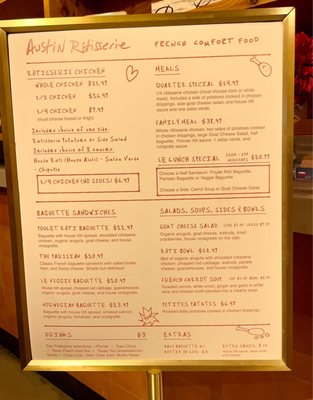 Austin Rotisserie
FRENCH COMFORT FOOD
ROTISSERIE CHICKEN
WHOLE CHICKEN
1/2 CHICKEN
1/4 CHICKEN
(must choose breast or thigh)
Includes choice of one side:
Rotisserie Potatoes or Side Salad
Includes choice of 2 sauces:
House Roti (House Garlic) - Salsa Verde
- Chipotle
1/4 CHICKEN (NO SIDES) $6.49
MEALS
QUARTER SPECIAL $14.99
1/4 rotisserie chicken (must choose dark or white
meat). Includes a side of potatoes cooked in chicken
drippings, side goat cheese salad, one house roti
sauce and one salsa verde.
FAMILY MEAL $38.99
Whole rotisserie chicken, two sides of potatoes cooked
in chicken drippings, large Goat Cheese Salad, half
baguette, 1 house roti sauce, 1 salsa verde, and
1 chipotle sauce.
LE LUNCH SPECIAL
$10.99
Choose a Half Sandwich: Poulet Roti Baguette,
Parisian Baguette or Veggie Baguette
Choose a Side: Carrot Soup or Goat Cheese Salad
BAGUETTE SANDWICHES
POULET ROTI BAGUETTE $11.99
Baguette with house roti spread, shredded rotisserie
chicken, organic arugula, goat cheese, and house
vinaigrette.
THE PARISIAN $10.99
Classic French baguette sandwich with salted butter,
ham, and Swiss cheese. Simple but delicious!
LE VEGGIE BAGUETTE $10.99
House roti spread, chopped red cabbage, guacamole,
organic arugula, goat cheese, and house vinaigrette.
NORWEGIAN BAGUETTE $13.99
Baguette with house roti spread, smoked salmon,
organic arugula, tomatoes, and vinaigrette.
SALADS, SOUPS, SIDES & BOWLS
GOAT CHEESE SALAD
Organic arugula, goat cheese, walnuts, dried
cranberries, house vinaigrette on the side
ROTI BOWL
Bed of organic arugula with shredded rotisserie
chicken, chopped red cabbage, walnuts,
cheese, guacamole, and house vinaigrette.
FRENCH CARROT SOUP
Roasted carrots, white onion, ginger and garlic in
white wine and chicken broth blended into a creamy
PETITES PATATES $4.99
Roasted baby potatoes cooked in chicken drippings.
DRINKS $3
San Pellegrino selections - Perrier - Topo Chico
EXTRAS
HALF BAGUETTE W/
EXTRA SAUCES